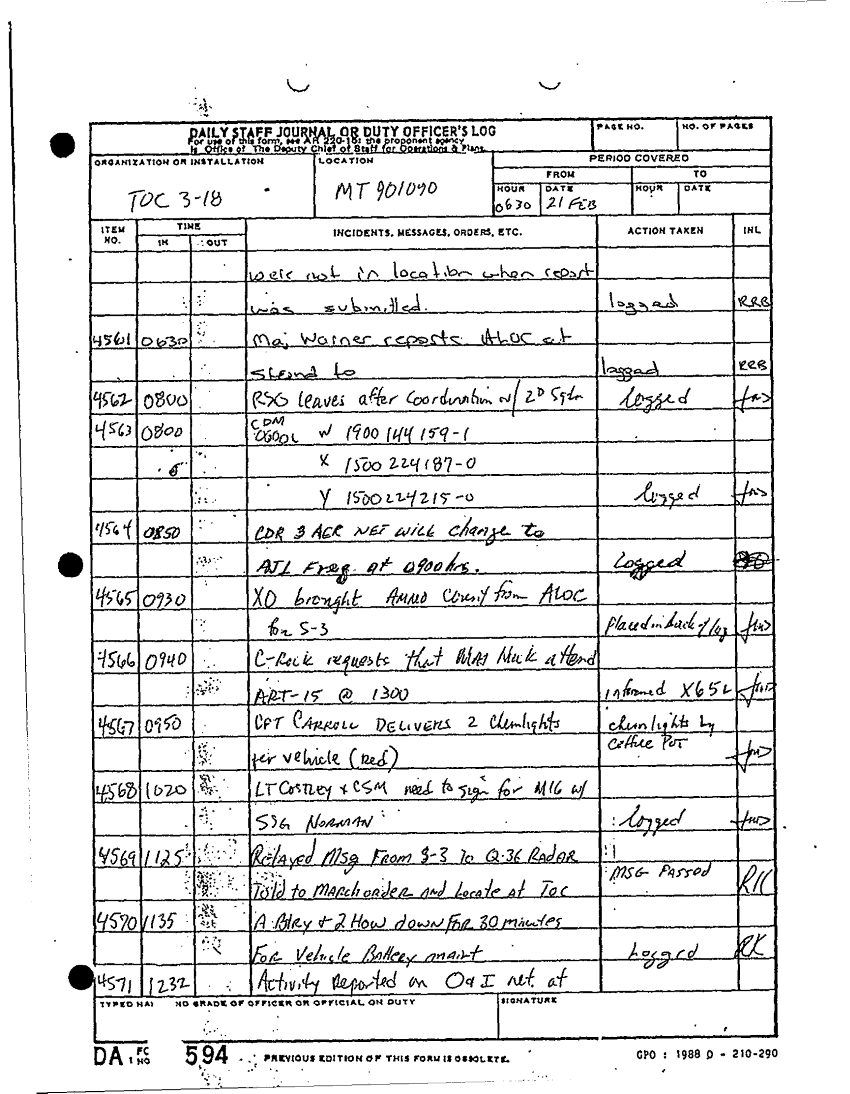 DAILY STAFF JOURNAL OR DUTY OFFICER'S LOG
For use of this form, see AR 220-15; the proponent agency
is Office of The Deputy Chief of Staff for Operations & Plans.
PAGE NO.
NO. OF PAGES
ORGANIZATION OR INSTALLATION
TOC 3-18
LOCATION
MT 901090
PERIOD COVERED
FROM
TO
HOUR DATE HOUR DATE
0630 21 FEB
ITEM NO. TIME IN OUT INCIDENTS, MESSAGES, ORDERS, ETC. ACTION TAKEN INL
were not in location when report
was submitted. logged RRB
4561 0630 Maj Warner reports ALOC at
stand to logged RRB
4562 0800 RSG leaves after Coordination w/ 2D Sqdn logged
4563 0800 CDM W 1900 144 159-1
X 1500 224187-0
Y 1500224215-0 logged
4564 0850 CDR 3 ACR NET WILL change to
Freq. at 0900 hrs. logged
4565 0930 XO brought AMMO from ALOC
for S-3 placed in back of log
4566 0940 C-Rock requests that MAJ attend
ART-15 @ 1300 informed
4567 0950 CPT CARROLL DELIVERS 2 Chemlights chemlights by
per vehicle (red) Coffee Pot
4568 1020 LT COSTLEY + CSM need to sign for M16 w/
SSG NORMAN logged
4569 1125 Relayed Msg From S-3 To Q-36 RADAR
Told to MARCH ORDER AND Locate at Toc MSG PASSED RK
4570 1135 A Btry + 2 How down FOR 30 minutes
For Vehicle Battery maint Logged RK
4571 1232 Activity Reported on O & I net at
TYPED NA GRADE OF OFFICER OR OFFICIAL ON DUTY
SIGNATURE
DA 594 PREVIOUS EDITION OF THIS FORM IS OBSOLETE.
GPO : 1988 O - 210-290